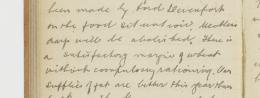 been made by Lord Devonport
on the food situation. Meatless
days will be abolished. There is
a satisfactory margin of wheat
without compulsory rationing. Our
supplies of are better this year than